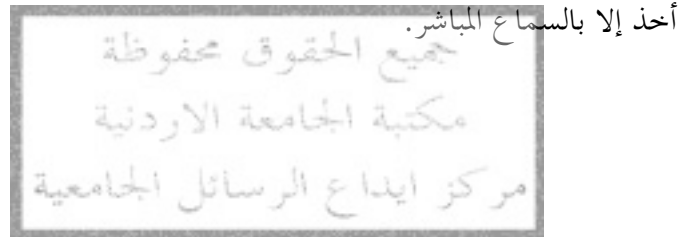 أخذ إلا بالسماع المباشر.
جميع الحقوق محفوظة
مكتبة الجامعة الاردنية
مركز ايداع الرسائل الجامعية